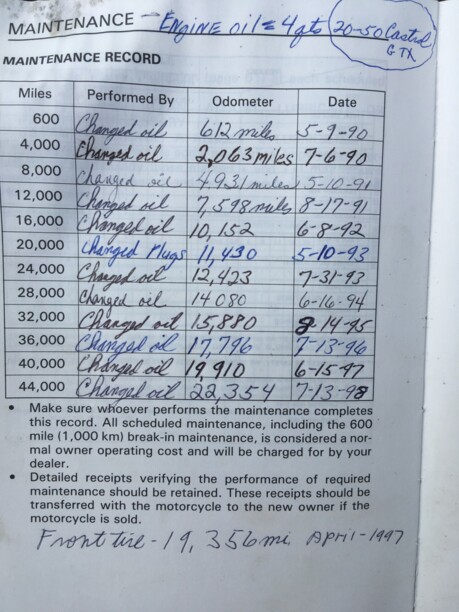 MAINTENANCE - ENGINE oil = 4 qts 20-50 Castrol
GTX
MAINTENANCE RECORD
Miles Performed By Odometer Date
600 Changed oil 612 miles 5-9-90
4,000 Changed oil 2,063 miles 7-6-90
8,000 Changed oil 4,931 miles 5-10-91
12,000 Changed oil 7,598 miles 8-17-91
16,000 Changed oil 10,152 6-8-92
20,000 Changed Plugs 11,430 5-10-93
24,000 Changed oil 12,423 7-31-93
28,000 Changed oil 14080 6-16-94
32,000 Changed oil 15,880 8-14-95
36,000 Changed oil 17,796 7-13-96
40,000 Changed oil 19,910 6-15-97
44,000 Changed oil 22,354 7-13-98
• Make sure whoever performs the maintenance completes
this record. All scheduled maintenance, including the 600
mile (1,000 km) break-in maintenance, is considered a nor-
mal owner operating cost and will be charged for by your
dealer.
• Detailed receipts verifying the performance of required
maintenance should be retained. These receipts should be
transferred with the motorcycle to the new owner if the
motorcycle is sold.
Front tire - 19,356 mi. April - 1997